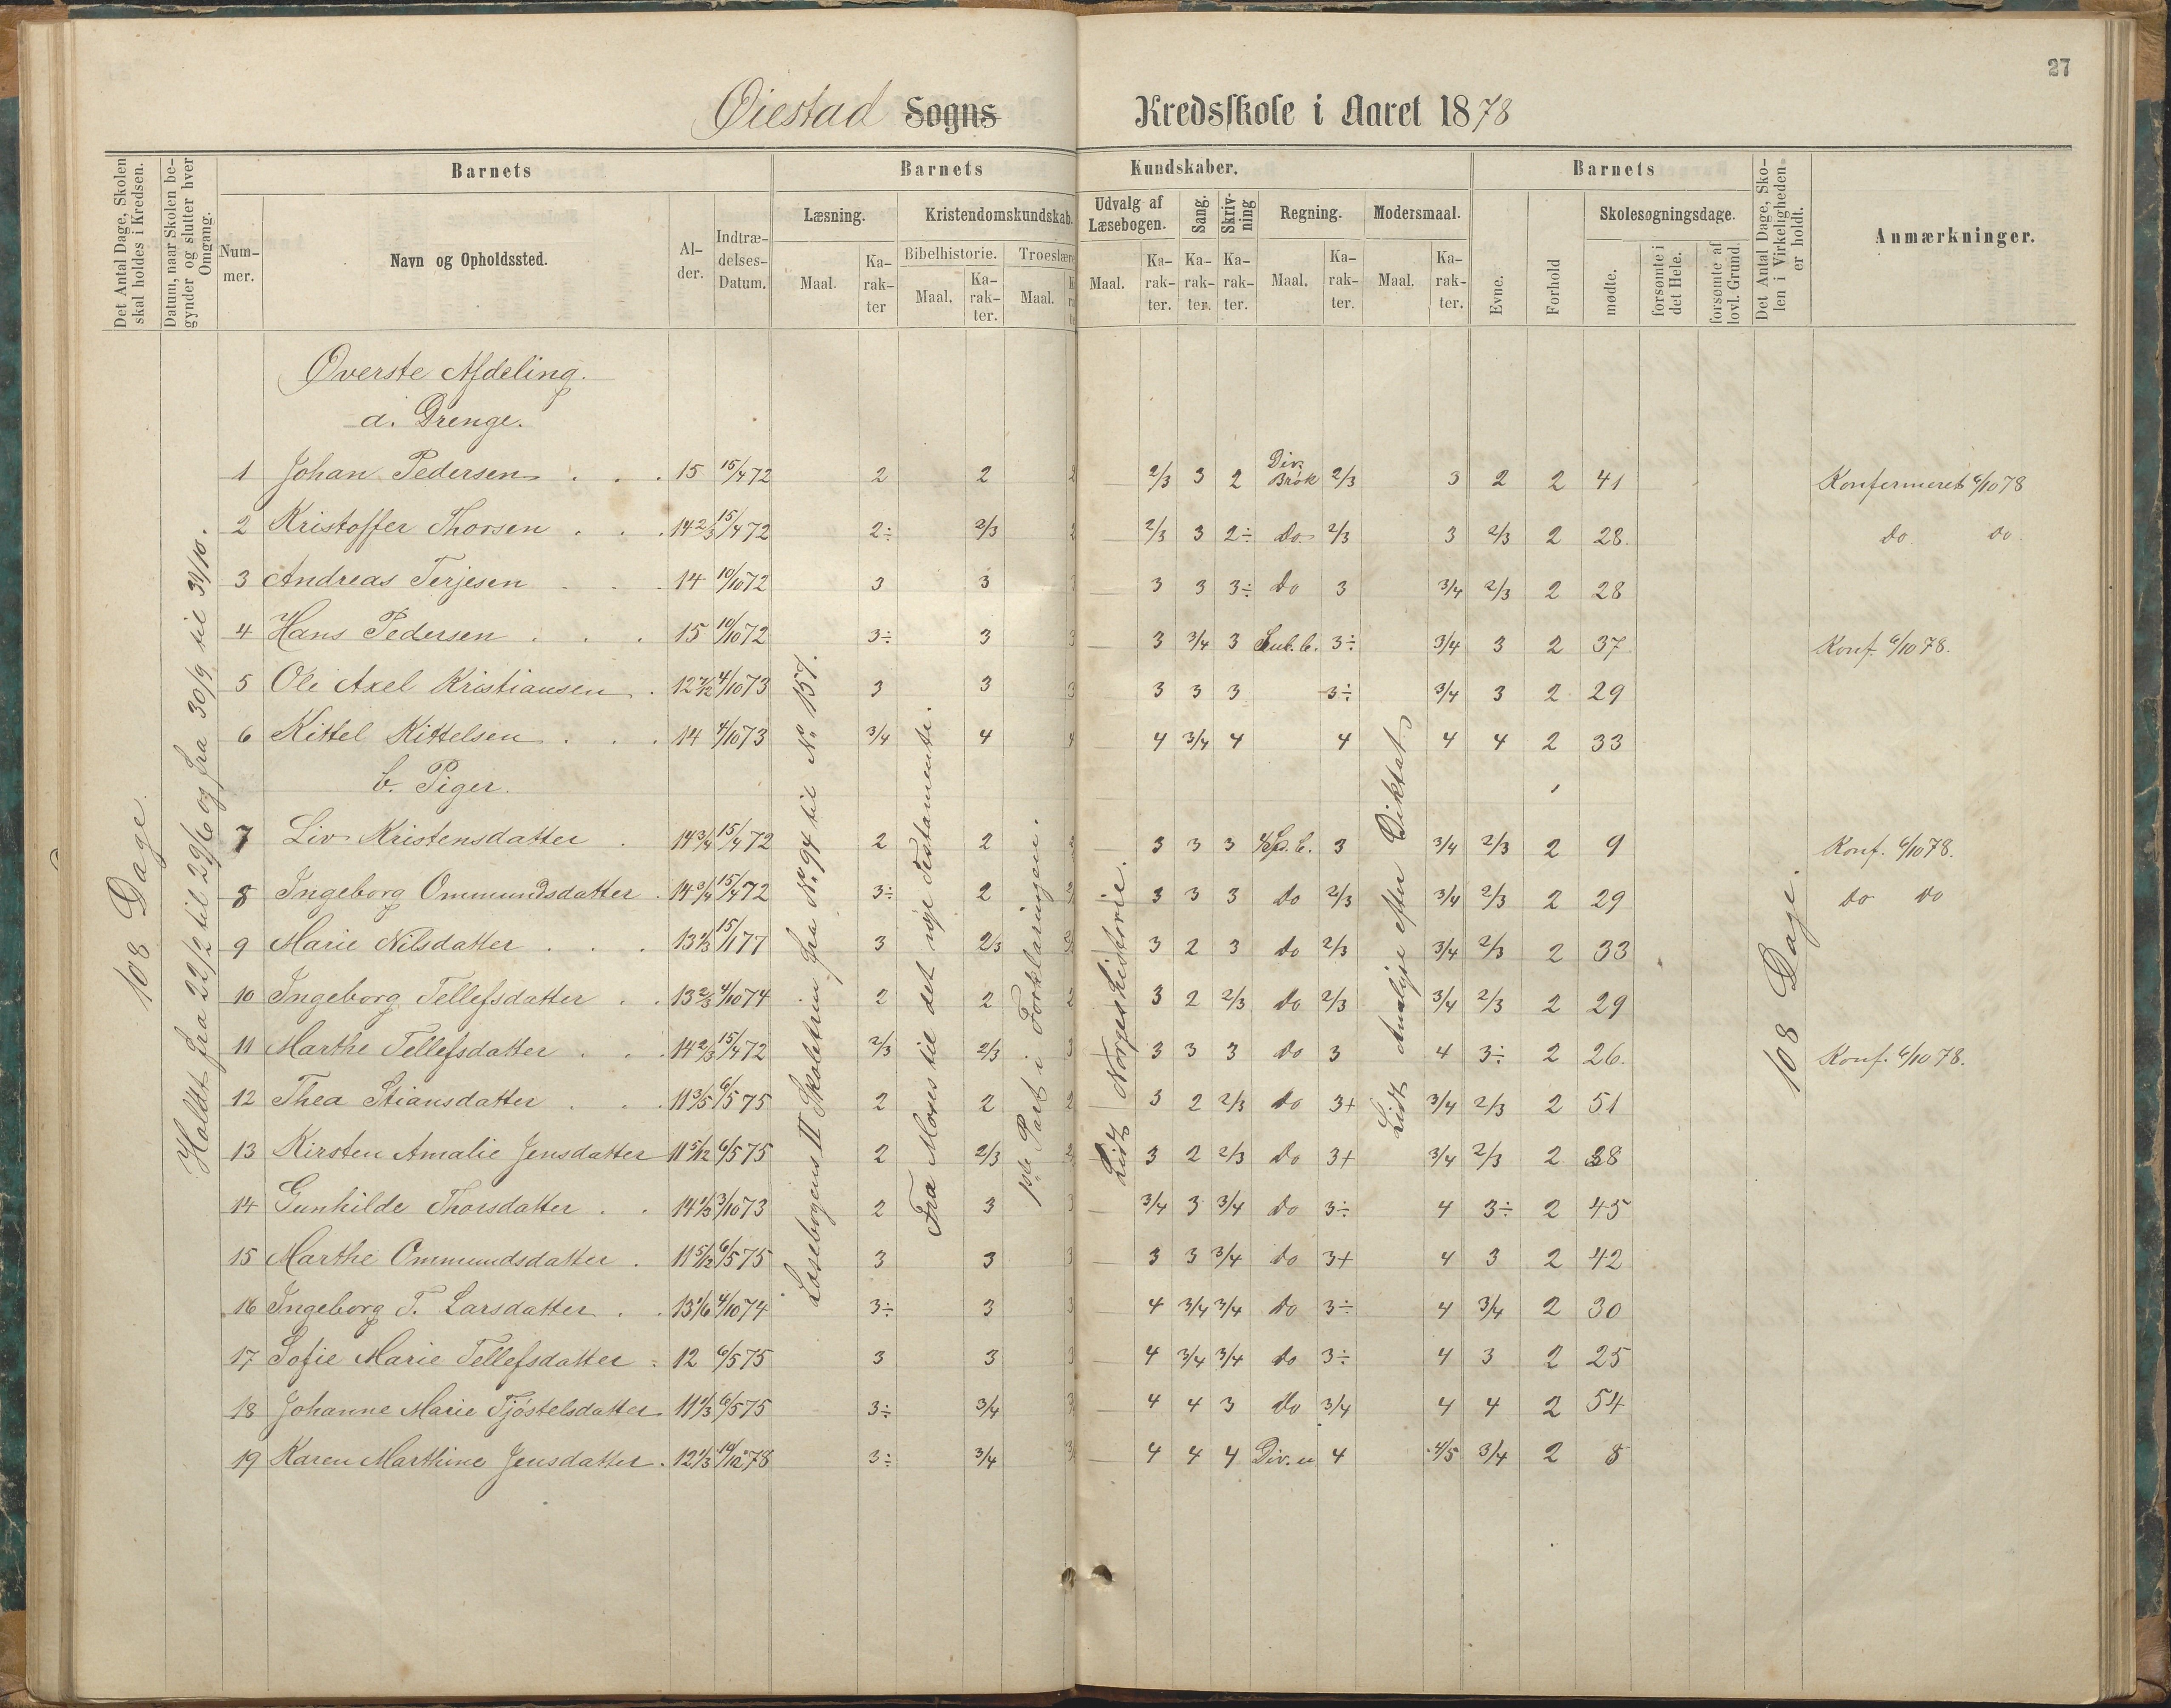 27
Øiestad Sogns Kredsskole i Aaret 1878
Det Antal Dage, Skolen skal holdes i Kredsen.
Datum, naar Skolen begynder og slutter hver Omgang.
Barnets
Nummer.
Navn og Opholdssted.
Alder.
Indtrædelses-Datum.
Barnets Kundskaber.
Læsning.
Maal. Karakter
Kristendomskundskab.
Bibelhistorie.
Maal. Karakter.
Troeslære
Maal.
Udvalg af Læsebogen.
Maal. Karakter.
Sang. Karakter.
Skrivning Karakter.
Regning.
Maal. Karakter.
Modersmaal.
Maal. Karakter.
Barnets
Evne.
Forhold
Skolesøgningsdage.
mødte.
forsømte i det Hele.
forsømte af lovl. Grund.
Det Antal Dage, Skolen i Virkeligheden er holdt.
Anmærkninger.
108 Dage.
Holdt fra 22/2 til 29/6 og fra 30/9 til 31/10.
Læsebogens II Skoletrin fra No. 94 til No. 157.
Fra Moses til det nye Testamente.
1ste Part i Forklaringen.
Lidt Norgeshistorie.
Lidt Analyse efter Diktat
108 Dage.
Øverste Afdeling.
a. Drenge.
1 Johan Pedersen . . . 15 15/4 72 2 2 2 2/3 3 2 Div. Brøk 2/3 3 2 2 41 Konfermeret 6/10 78
2 Kristoffer Thorsen . . . 14 2/3 15/4 72 2÷ 2/3 2 2/3 3 2÷ do 2/3 3 2/3 2 28 do do
3 Andreas Terjesen . . . 14 10/10 72 3 3 3 3 3 3÷ do 3 3/4 2/3 2 28
4 Hans Pedersen . . . 15 10/10 72 3÷ 3 3 3 3/4 3 Sub. b. 3÷ 3/4 3 2 37 Konf. 6/10 78.
5 Ole Axel Kristiansen . 12 7/12 4/10 73 3 3 3 3 3 3 3÷ 3/4 3 2 29
6 Kittel Kittelsen . . . 14 4/10 73 3/4 4 4 4 3/4 4 4 4 4 2 33
b. Piger.
7 Liv Kristensdatter . 14 3/4 15/4 72 2 2 2 3 3 3 3 3/4 2/3 2 9 Konf. 6/10 78.
8 Ingeborg Ommundsdatter . 14 3/4 15/4 72 3÷ 2 2 3 3 3 do 2/3 3/4 2/3 2 29 do do
9 Marie Nilsdatter . . . 13 1/3 15/1 77 3 2/3 3 2 3 do 2/3 3/4 2/3 2 33
10 Ingeborg Tellefsdatter . . 13 2/3 4/10 74 2 2 2 3 2 2/3 do 2/3 3/4 2/3 2 29
11 Marthe Tellefsdatter . . . 14 2/3 15/4 72 2/3 2/3 3 3 3 3 do 3 4 3÷ 2 26. Konf. 6/10 78.
12 Thea Stiansdatter . . . 11 3/5 6/5 75 2 2 2 3 2 2/3 do 3+ 3/4 2/3 2 51
13 Kirsten Amalie Jensdatter 11 5/12 6/5 75 2 2/3 2 3 2 2/3 do 3+ 3/4 2/3 2 38
14 Gunhilde Thorsdatter . . 14 1/3 3/10 73 2 3 3 3/4 3 3/4 do 3÷ 4 3÷ 2 45
15 Marthe Ommundsdatter . 11 5/12 6/5 75 3 3 3 3 3 3/4 do 3+ 4 3 2 42
16 Ingeborg T. Larsdatter . . 13 1/6 4/10 74 3÷ 3 3 4 3/4 3/4 do 3÷ 4 3/4 2 30
17 Sofie Marie Tellefsdatter . 12 6/5 75 3 3 3 4 3/4 3/4 do 3÷ 4 3 2 25
18 Johanne Marie Tjøstelsdatter 11 1/3 6/5 75 3÷ 3/4 4 4 3 do 3/4 4 4 2 54
19 Karen Marthine Jensdatter . 12 1/3 14/10 78 3÷ 3/4 4 4 4 Div. u 4 4/5 3/4 2 8